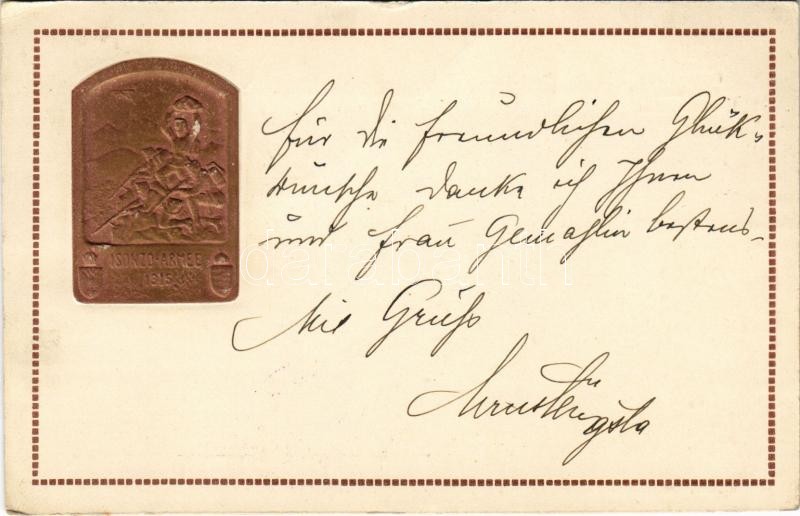 ISONZO-ARMEE
1915
für die freundlichen Glück-
wünsche danke ich Ihnen
und Frau Gemahlin bestens.
Mit Gruß